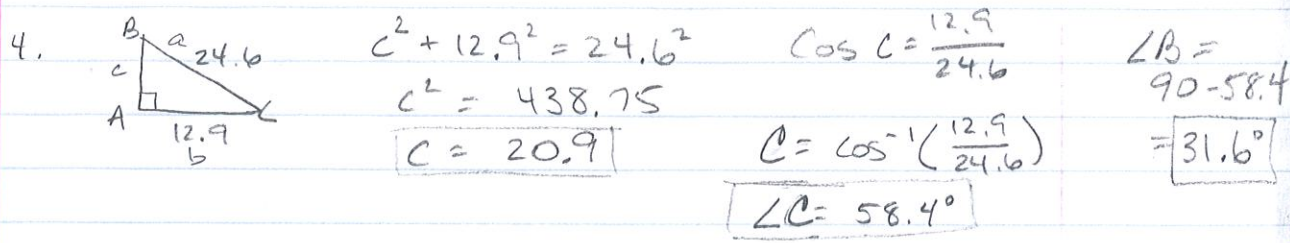 4.
B a 24.6
c
A C
12.9
b
c² + 12.9² = 24.6²
c² = 438.75
C = 20.9
Cos C = 12.9/24.6
C = cos⁻¹(12.9/24.6)
∠C = 58.4°
∠B =
90-58.4
= 31.6°